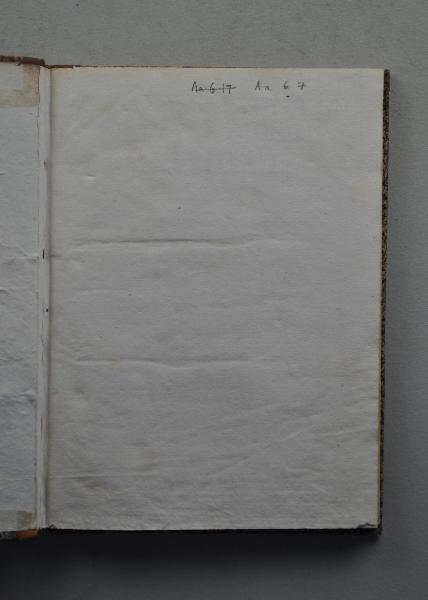 Aa 6 17 Aa 6 7